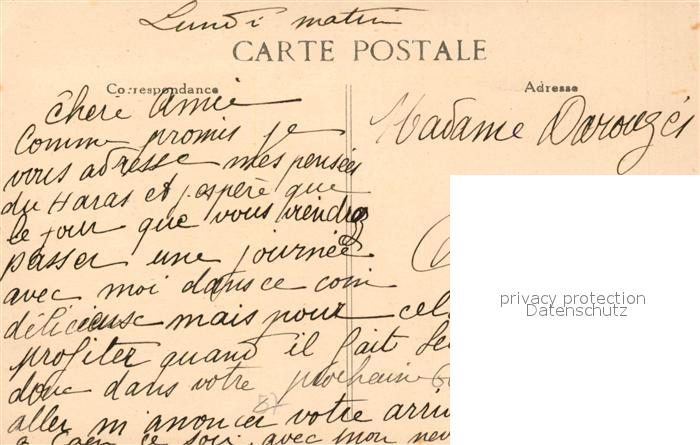 Lundi matin
CARTE POSTALE
Correspondance
Adresse
Chère Amie
Madame Darouzés
Comme promis je
vous adresse mes pensées
du Haras et j'espère que
le jour que vous viendrez
passer une journée
avec moi dans ce coin
privacy protection
Datenschutz
délicieuse mais pour cel
profiter quand il fait
donc dans votre prochaine
57
aller m'anoncer votre arri
à Caen ce soir avec mon nev